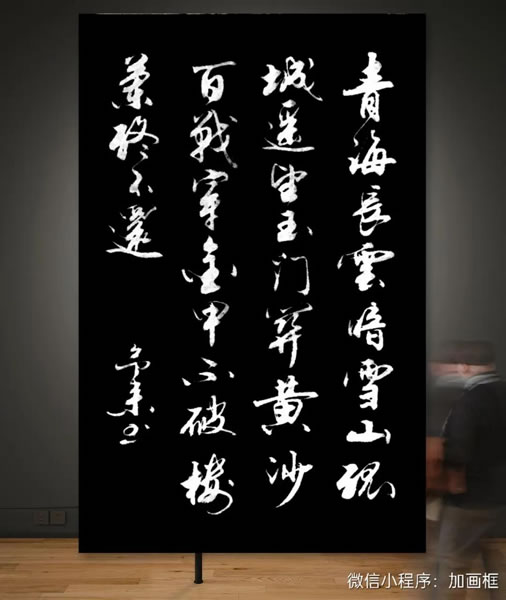 青海長雲暗雪山孤
城遥望玉门関黄沙
百戰穿金甲不破樓
蘭終不還
书
微信小程序：加画框